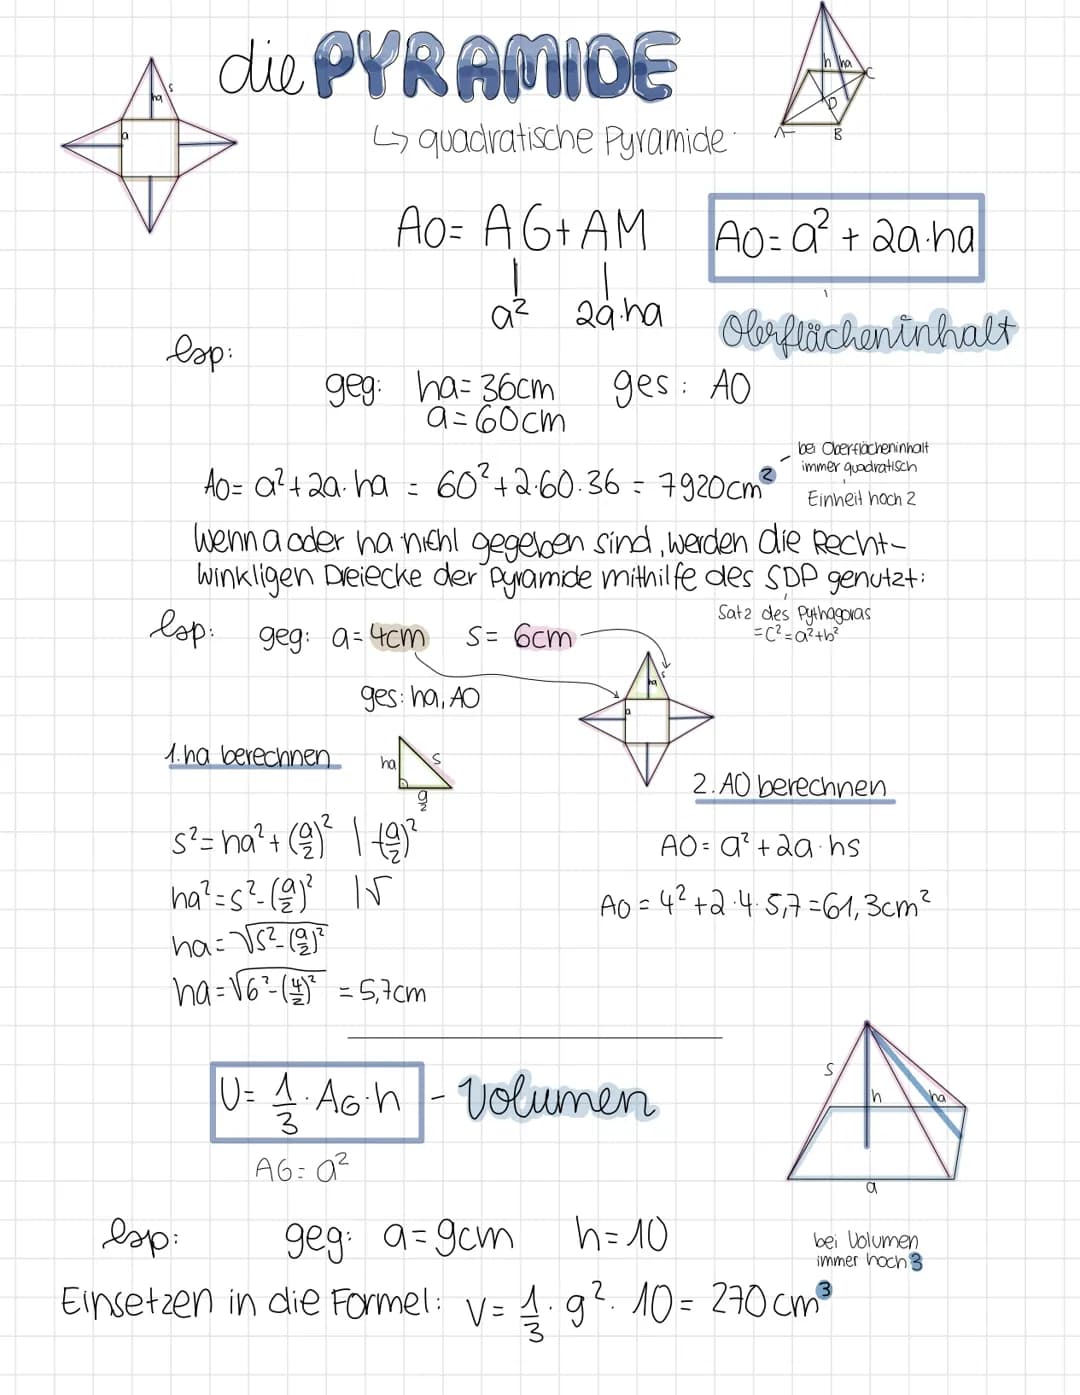 die PYRAMIDE
↳ quadratische Pyramide
s
ha
a
h ha
C
D
A
B
AO = AG + AM
a² 2a·ha
AO = a² + 2a·ha
Oberflächeninhalt
bsp:
geg: ha = 36cm ges: AO
a = 60cm
AO = a² + 2a·ha = 60² + 2·60·36 = 7920cm²
bei Oberflächeninhalt
immer quadratisch
Einheit hoch 2
Wenn a oder ha nicht gegeben sind, werden die Recht-
winkligen Dreiecke der Pyramide mithilfe des SDP genutzt:
Satz des Pythagoras
= c² = a² + b²
bsp: geg: a = 4cm s = 6cm
ges: ha, AO
s
ha
a
1. ha berechnen
ha s
a/2
s² = ha² + (a/2)² | -(a/2)²
ha² = s² - (a/2)² | √
ha = √s² - (a/2)²
ha = √6² - (4/2)² = 5,7cm
2. AO berechnen
AO = a² + 2a·hs
AO = 4² + 2·4·5,7 = 61,3cm²
V = 1/3 · AG · h - Volumen
AG = a²
s
h
ha
a
bsp: geg: a = 9cm h = 10
bei Volumen
immer hoch 3
Einsetzen in die Formel: V = 1/3 · 9² · 10 = 270cm³